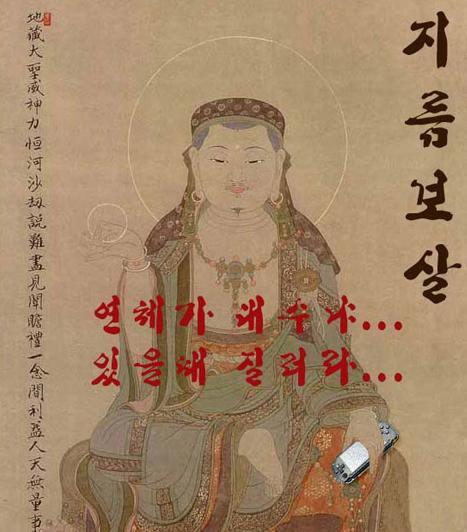 지름보살
연체가 대수냐...
있을때 질러라...
地藏大聖威神力恒河沙劫說難盡見聞瞻禮一念間利益人天無量事